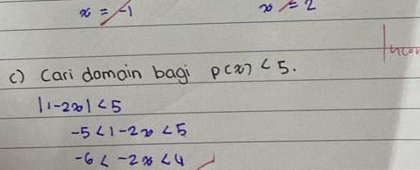 x = -1 x = 2
c) Cari domain bagi p(x) < 5.
|1-2x| < 5
-5 < 1-2x < 5
-6 < -2x < 4